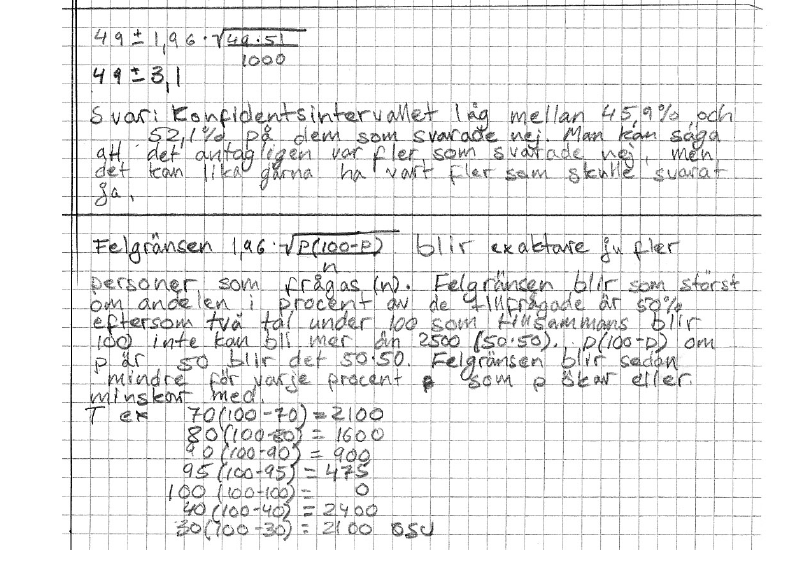 49 ± 1,96 · √49·51
1000
49 ± 3,1
Svar: Konfidentsintervallet låg mellan 45,9% och
52,1% på dem som svarade nej. Man kan säga
att det antagligen var fler som svarade nej, men
det kan lika gärna ha vart fler som skulle svarat
ja.
Felgränsen 1,96·√p(100-p) blir exaktare ju fler
n
personer som frågas (n). Felgränsen blir som störst
om andelen i procent av de tillfrågade är 50%
eftersom två tal under 100 som tillsammans blir
100 inte kan bli mer än 2500 (50·50). p(100-p) om
p är 50 blir det 50·50. Felgränsen blir sedan
mindre för varje procent som p ökar eller
minskar med.
T ex 70(100-70)=2100
80(100-80)=1600
90(100-90)=900
95(100-95)=475
100(100-100)=0
40(100-40)=2400
30(100-30)=2100 osv